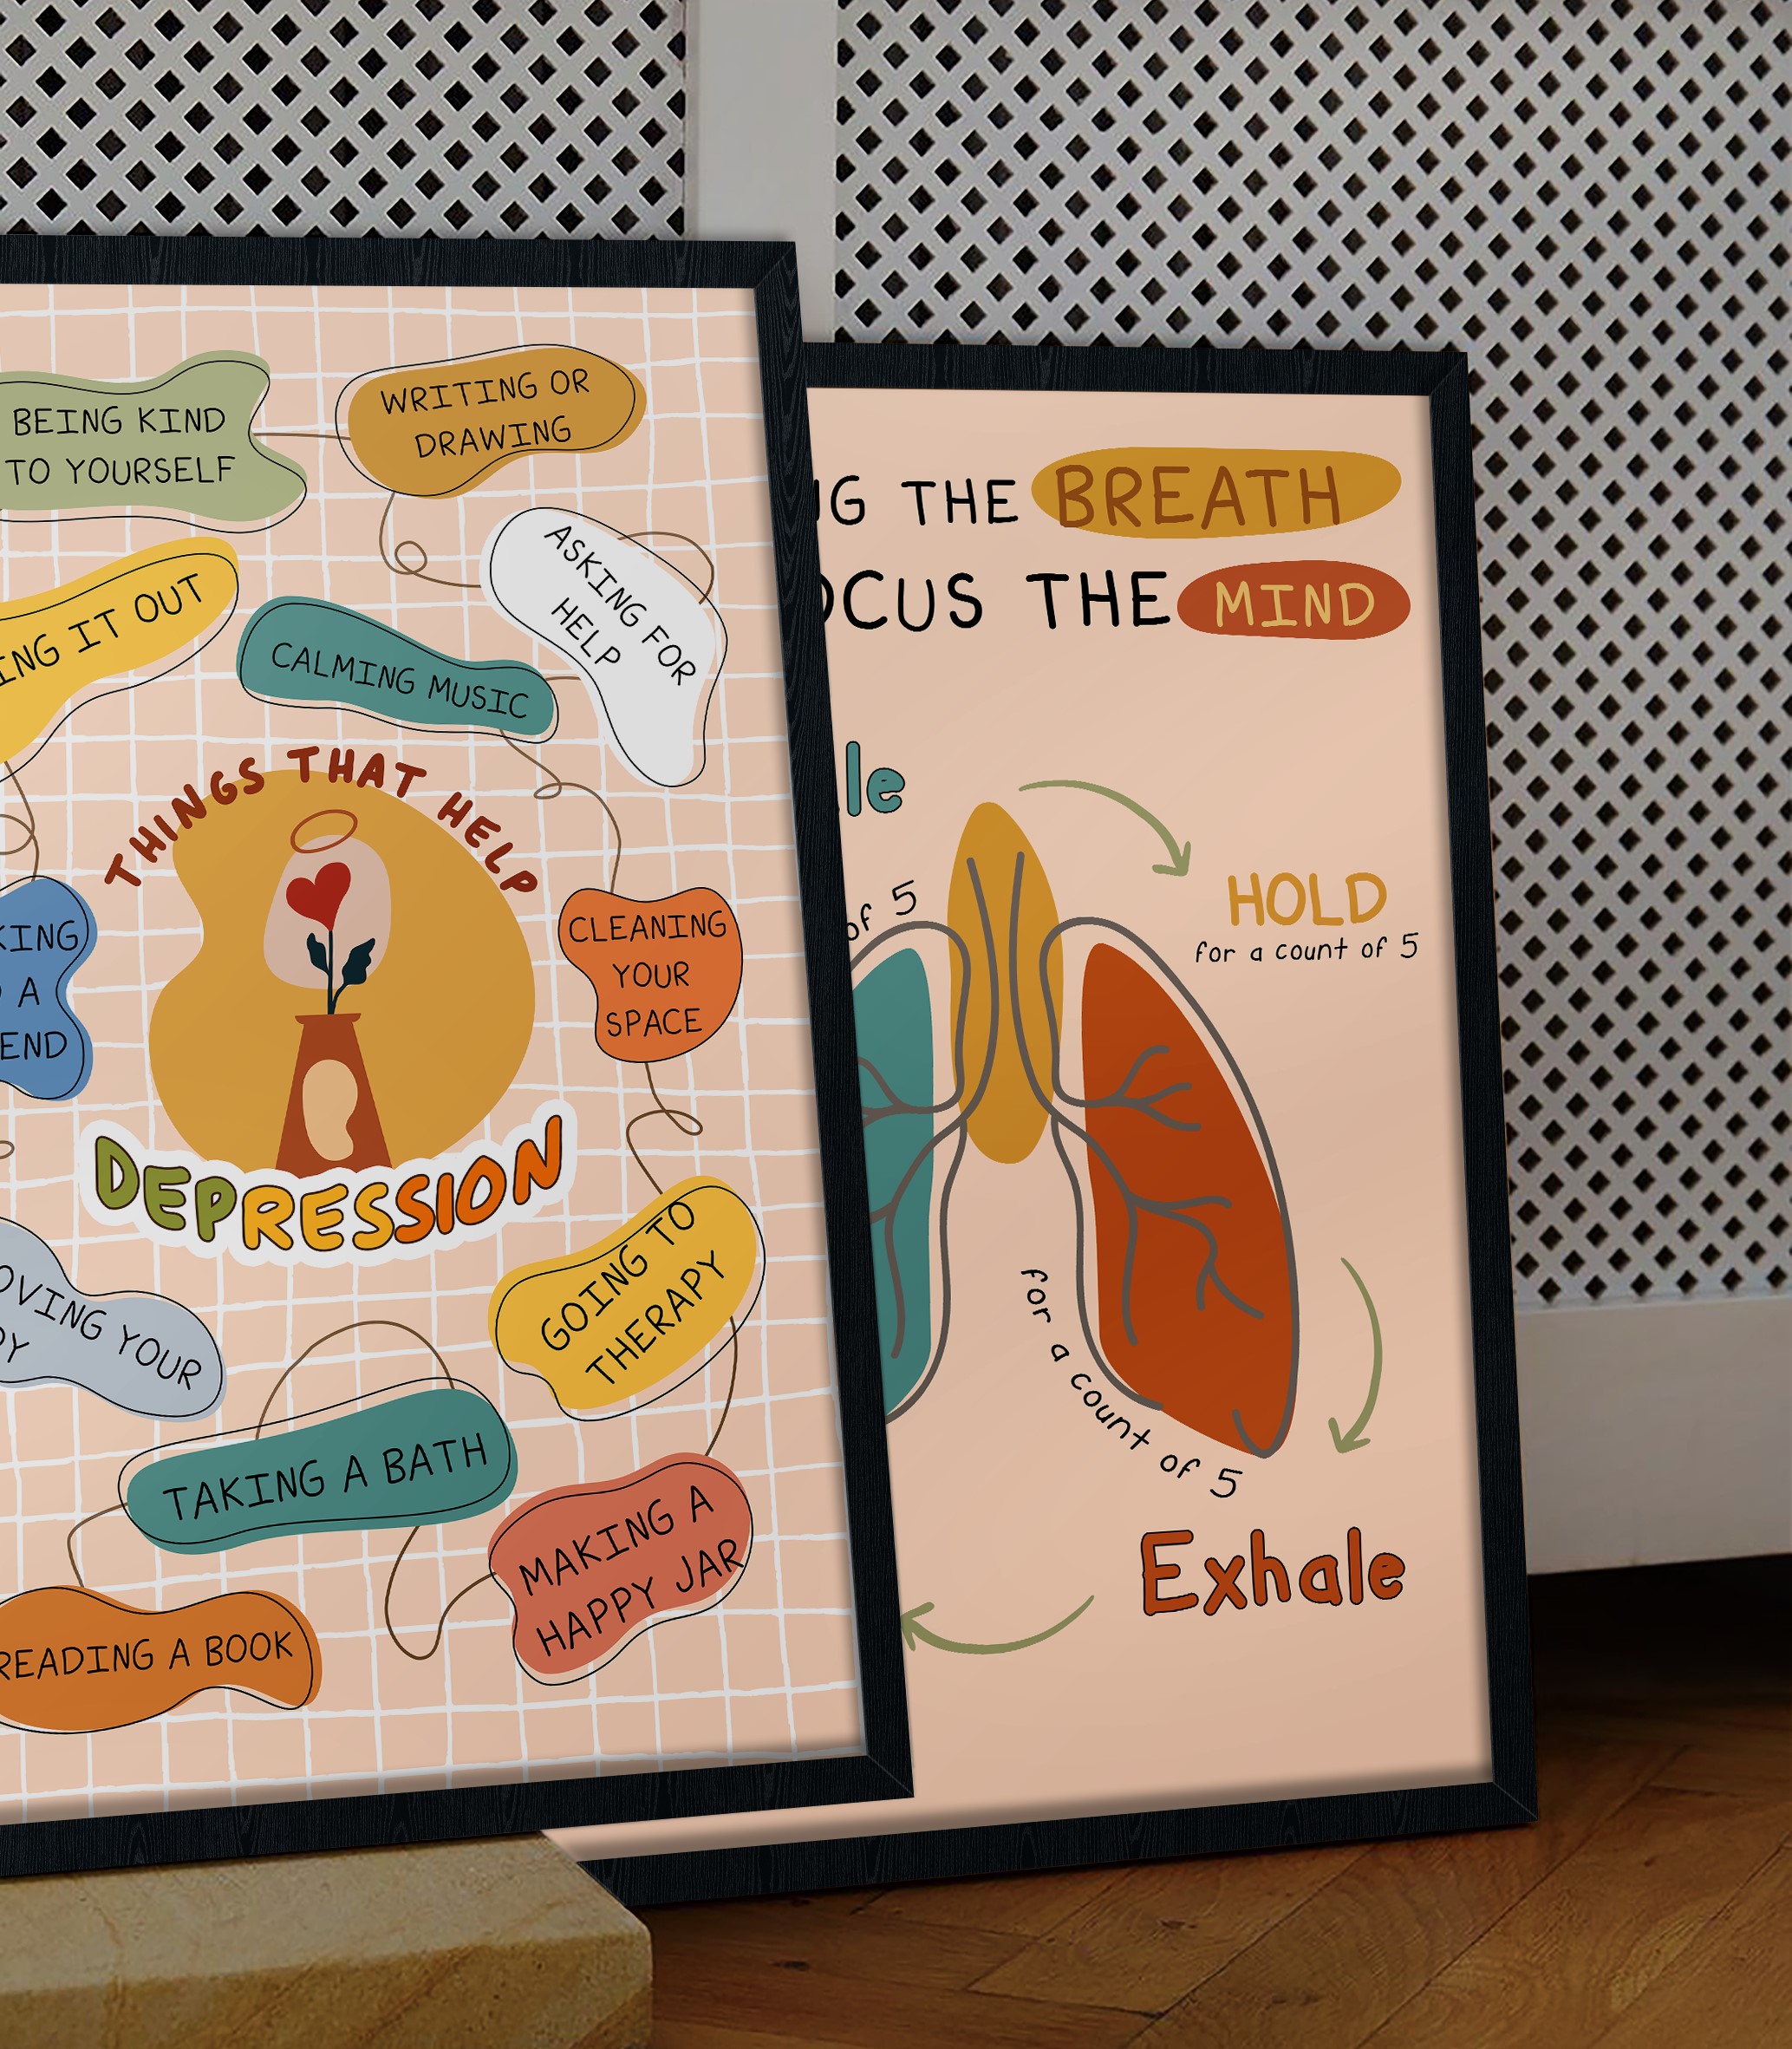 BEING KIND
TO YOURSELF
WRITING OR
DRAWING
ASKING FOR
HELP
IT OUT
CALMING MUSIC
THINGS THAT HELP
DEPRESSION
CLEANING
YOUR
SPACE
A
YOUR
GOING TO
THERAPY
TAKING A BATH
MAKING A
HAPPY JAR
READING A BOOK
THE BREATH
THE MIND
of 5
HOLD
for a count of 5
for a count of 5
Exhale